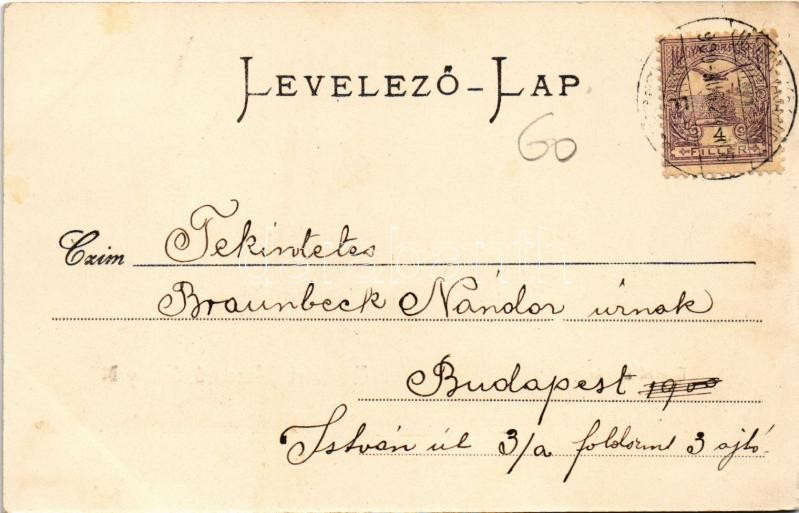 LEVELEZŐ-LAP
60
4
FILLÉR
Czim Tekintetes
Braunbeck Nándor úrnak
Budapest 1900
István út 3/a földszint 3 ajtó.
darabanth